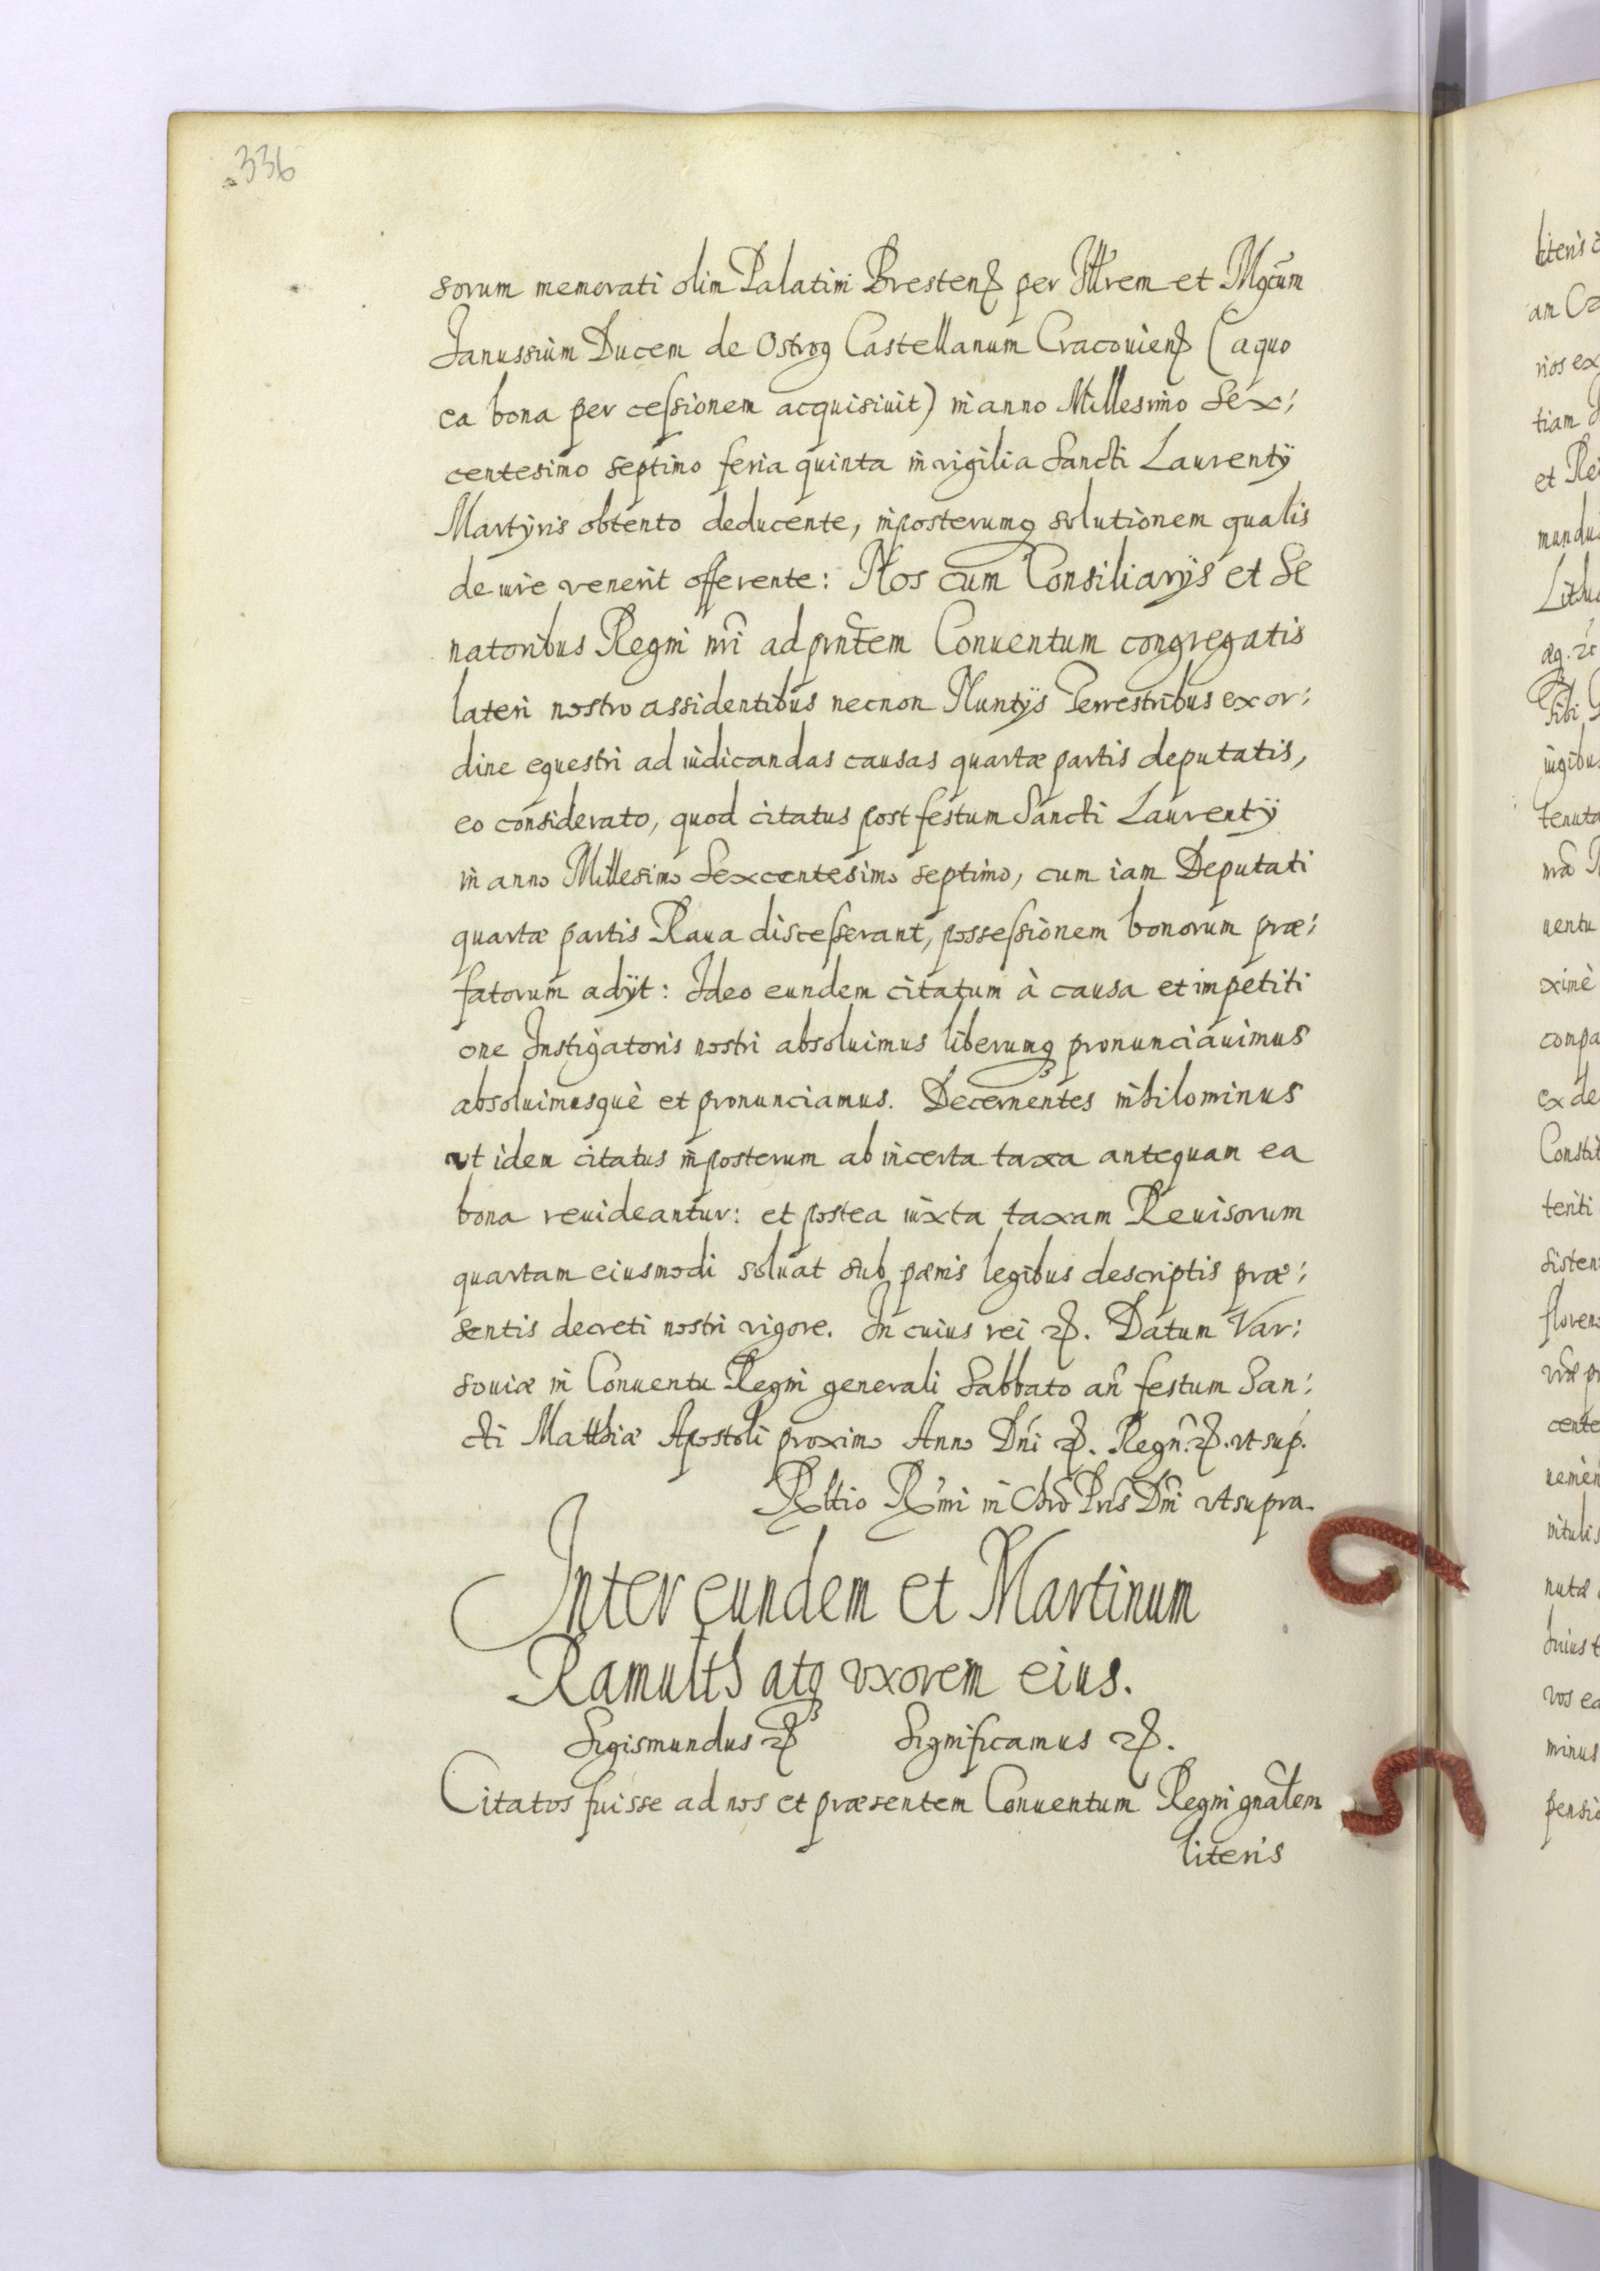 336
sorum memorati olim Palatini Brestenꝭ per Illrem et Mgcum
Janussium Ducem de Ostrog Castellanum Cracouienꝭ (a quo
ea bona per ceſsionem acquisiuit) in anno Millesimo Sex:
centesimo septimo feria quinta in vigilia Sancti Laurentÿ
Martÿris obtento deducente, inposterumq solutionem qualis
de iure venerit offerente: Nos cum Consiliarijs et Se
natoribus Regni nri ad pntem Conuentum congregatis
lateri nostro assidentibus necnon Nuntÿs Terrestribus ex or:
dine equestri ad iudicandas causas quartæ partis deputatis,
eo considerato, quod citatus post festum Sancti Laurentÿ
in anno Millesimo Sexcentesimo septimo, cum iam Deputati
quartæ partis Raua disceſserant, posseſsionem bonorum præ:
fatorum adÿt: Ideo eundem citatum à causa et impetiti
one Instigatoris nostri absoluimus liberumq pronunciauimus
absoluimusquè et pronunciamus. Decernentes nihilominus
vt idem citatus inposterum ab incerta taxa antequam ea
bona reuideantur: et postea iuxta taxam Reuisorum
quartam eiusmodi soluat sub pænis legibus descriptis præ:
sentis decreti nostri vigore. In cuius rei ꝛꝭ. Datum Var:
souiæ in Conuentu Regni generali Sabbato an festum San:
cti Matthiæ Apostoli proximo Anno Dni ꝛꝭ. Regn. ꝛꝭ. vt sup.
Rltio Rmi in Chro Pris Dni vt supra.
Inter eundem et Martinum
Ramulth atq vxorem eius.
Sigismundus ꝛꝭ Significamus ꝛꝭ.
Citatos fuisse ad nos et præsentem Conuentum Regni gnalem
literis